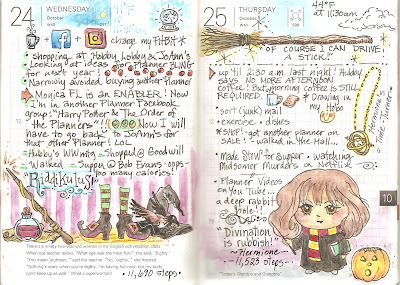 24 WEDNESDAY
October
charge my fitBit *
Shopping at Hobby Lobby & JoAnn's
Looking at ideas for planner BLING
for next year!
Narrowly avoided buying another planner
Monica FL is an ENABLER! Now
I'm in another Planner Facebook
group: "Harry Potter & The Order of
the Planners"! Now I will
have to go back to JoAnn's for
that other planner! LOL
Hubby's WW mtg - Shopped @ Goodwill
- Walked - Supper @ Bob Evans - oops -
too many calories!
Riddikulus
There's a ninety-two-year-old woman in the English conversation class.
When our teacher asked, "What age was the most fun?" she said, "Eighty."
"You mean 'eighteen,'" said the teacher. "No, 'eighty,'" she insisted.
- 11,690 steps -
25 THURSDAY
October
44°F
at 11:30am
OF COURSE I CAN DRIVE
A STICK!
up 'til 2:30 a.m. last night! Hubby
says NO MORE AFTERNOON
coffee! But morning coffee is STILL
REQUIRED.
* Drawing in
my Hobo
* sort (junk) mail
* exercise * dishes
* SHOP! - got another planner on
SALE! - walked in the Mall...
Hermione's
Time Turner
* Made Stew for Supper * watching
Midsomer Murders on Netflix
* Planner Videos
on You Tube...
a deep rabbit
hole!
"Divination
is rubbish!"
~ Hermione
- 11,523 steps -
10